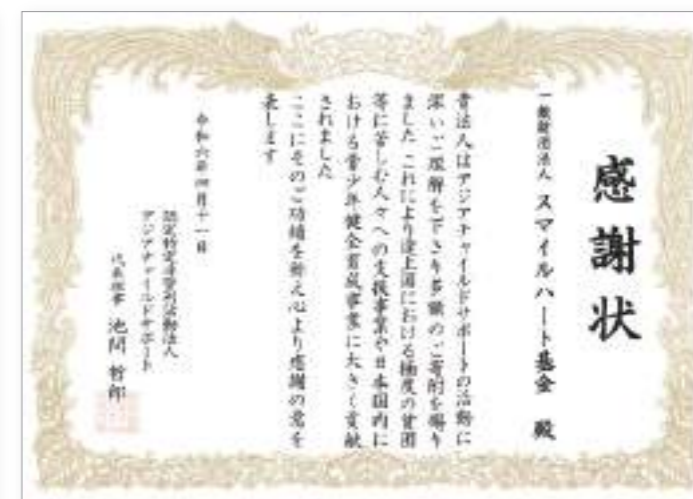 感謝状
一般財団法人 スマイルハート基金 殿
貴法人はアジアチャイルドサポートの活動に
深いご理解を下さり多額のご寄附を賜り
ました これにより途上国における極度の貧困
等に苦しむ人々への支援事業や日本国内に
おける青少年健全育成事業に大きく貢献
されました
ここにそのご功績を称え心より感謝の意を
表します
令和六年四月十一日
認定特定非営利活動法人
アジアチャイルドサポート
代表理事 池間 哲郎